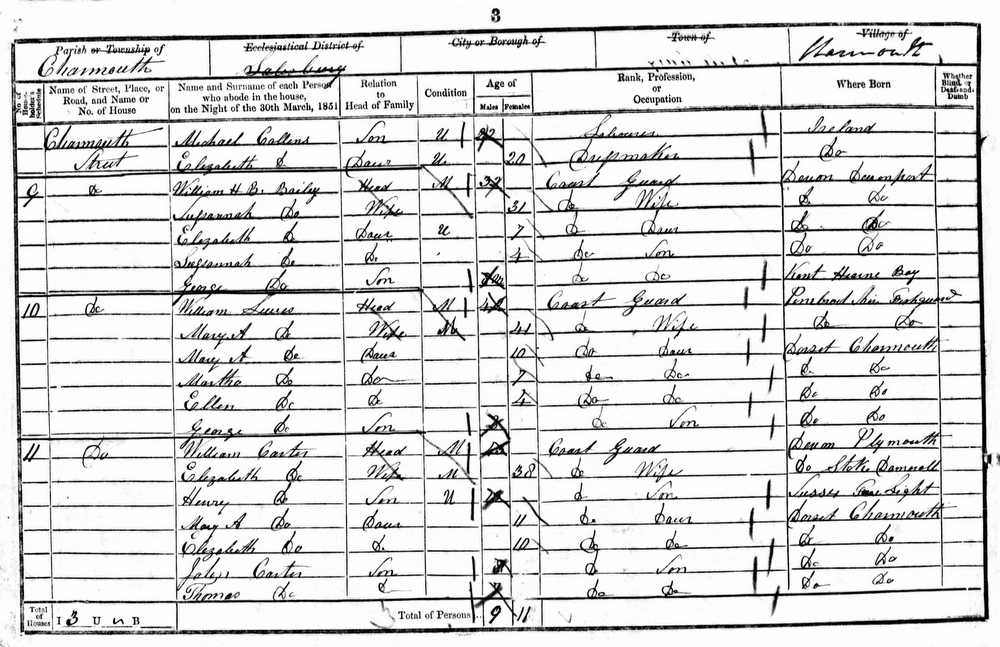 3
Parish or Township of Ecclesiastical District of City or Borough of Town of Village of
Charmouth Charmouth
No. of House-holder's Schedule Name of Street, Place, or Road, and Name or No. of House Name and Surname of each Person who abode in the house, on the Night of the 30th March, 1851 Relation to Head of Family Condition Age of Males Females Rank, Profession, or Occupation Where Born Whether Blind, or Deaf-and-Dumb
Charmouth Michael Collins Son U Labourer Ireland
Street Elizabeth Do Daur U 20 Dressmaker Do
9 Do William H. B. Bailey Head M 32 Coast Guard Devon Devonport
Sussannah Do Wife 31 Do Wife Do Do
Elizabeth Do Daur U 7 Do Daur Do Do
Sussannah Do Do 4 Do Son Do Do
George Do Son Do Do Kent Hearne Bay
10 Do William Head M Coast Guard Fishguard
Mary A Do Wife M 41 Do Wife Do Do
Mary A Do Daur 10 Do Daur Dorset Charmouth
Martha Do Do 7 Do Do Do Do
Ellen Do Do 4 Do Do Do Do
George Do Son Do Son Do Do
11 Do William Carter Head M Coast Guard Devon Plymouth
Elizabeth Do Wife M 38 Do Wife Do Stoke Damerall
Henry Do Son U Do Son Sussex
Mary A Do Daur 11 Do Daur Dorset Charmouth
Elizabeth Do Do 10 Do Do Do Do
John Carter Son Do Son Do Do
Thomas Do Do Do Do Do Do
Total of Houses I 3 U B Total of Persons 9 11